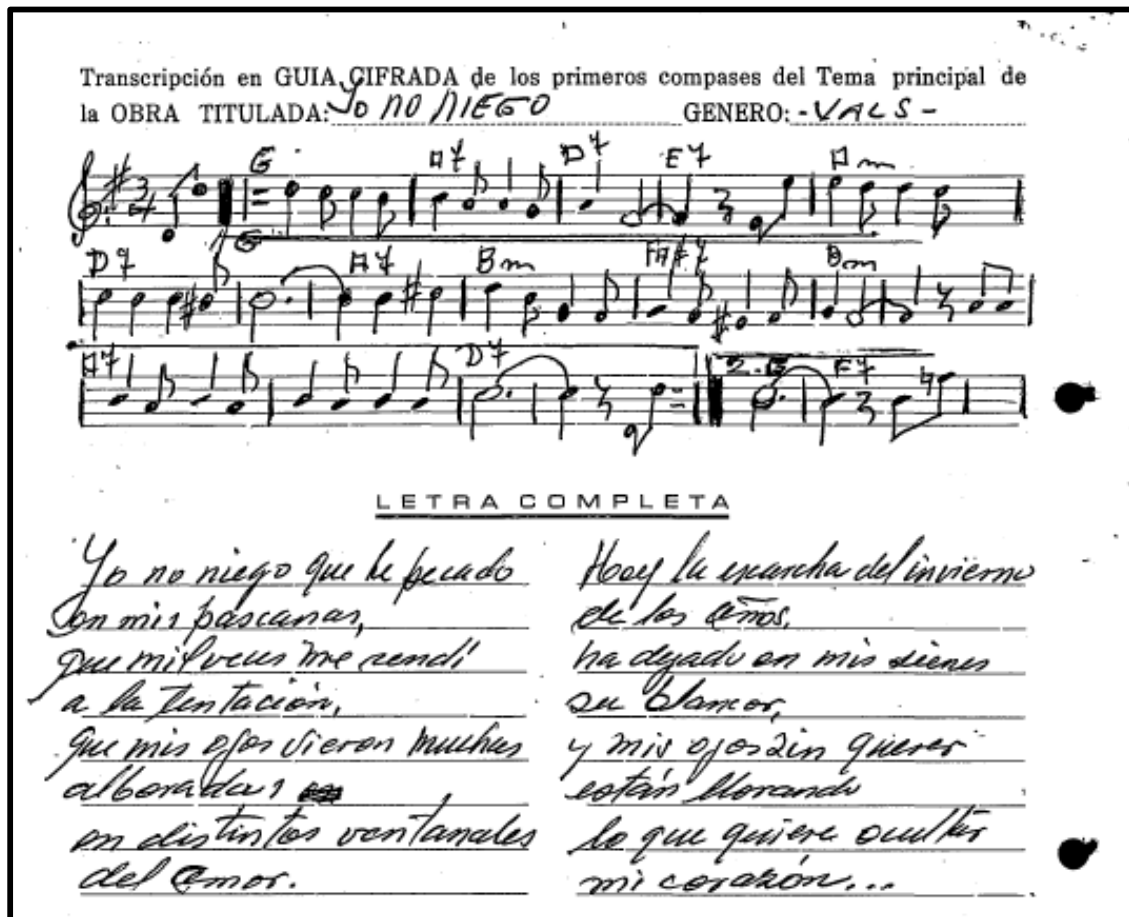 Transcripción en GUIA CIFRADA de los primeros compases del Tema principal de
la OBRA TITULADA: YO NO NIEGO GENERO: -VALS-
G A7 D7 E7 Am
3/4
D7 G A7 Bm FA#7 Bm
A7 D7 2. G E7
LETRA COMPLETA
Yo no niego que he pecado
en mis pascanas,
que mil veces me rendí
a la tentación,
que mis ojos vieron muchas
alboradas
en distintos ventanales
del amor.
Hoy la escarcha del invierno
de los años,
ha dejado en mis sienes
su blancor,
y mis ojos sin querer
están llorando
lo que quiere ocultar
mi corazón...